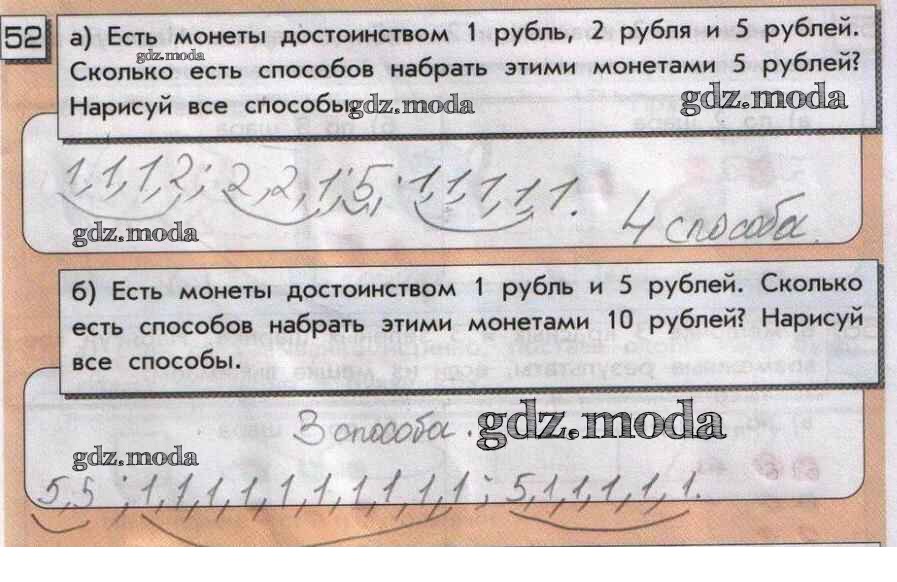 52
а) Есть монеты достоинством 1 рубль, 2 рубля и 5 рублей.
gdz.moda
Сколько есть способов набрать этими монетами 5 рублей?
Нарисуй все способы.
gdz.moda
gdz.moda
1,1,1,2; 2,2,1; 5; 1,1,1,1,1.
4 способа.
gdz.moda
б) Есть монеты достоинством 1 рубль и 5 рублей. Сколько
есть способов набрать этими монетами 10 рублей? Нарисуй
все способы.
3 способа.
gdz.moda
gdz.moda
5,5; 1,1,1,1,1,1,1,1,1,1; 5,1,1,1,1,1.